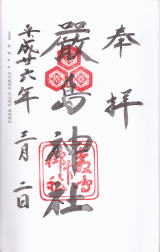 奉拝
厳島神社
平成廿六年
三月二日